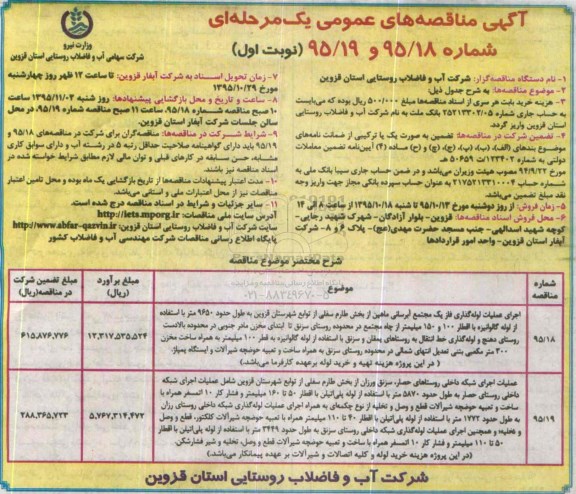 آگهی مناقصه‌های عمومی یک‌مرحله‌ای
شماره ۹۵/۱۸ و ۹۵/۱۹ (نوبت اول)
وزارت نیرو
شرکت سهامی آب و فاضلاب روستایی استان قزوین
۱- نام دستگاه مناقصه‌گزار: شرکت آب و فاضلاب روستایی استان قزوین
۲- موضوع مناقصه‌ها: به شرح جدول ذیل:
۳- هزینه خرید بابت هر سری از اسناد مناقصه‌ها مبلغ ۵۰۰/۰۰۰ ریال بوده که می‌بایست
به حساب جاری شماره ۲۵۲۱۳۳۰۲/۵ بانک ملت به نام شرکت آب و فاضلاب روستایی
استان قزوین واریز گردد.
۴- تضمین شرکت در مناقصه‌ها: تضمین به صورت یک یا ترکیبی از ضمانت نامه‌های
موضوع بندهای (الف)، (ب)، (پ)، (ج)، (چ) و (ح)ـ ماده (۴) آیین‌نامه تضمین معاملات
دولتی به شماره ۱۲۳۴۰۲/ت ۵۰۶۵۹ هـ
مورخ ۹۴/۹/۲۲ مصوب هیئت وزیران می‌باشد و در ضمن حساب جاری سیبا بانک ملی به
شماره حساب ۲۱۷۵۲۱۳۳۱۰۰۰۴ به عنوان حساب سپرده بانکی مجاز جهت واریز وجه
نقد مبلغ تضمین می‌باشد.
۵- زمان فروش: از روز دوشنبه مورخ ۹۵/۱۰/۱۳ تا شنبه ۹۵/۱۰/۱۸ از ساعت ۸ الی ۱۴
۶- محل فروش اسناد مناقصه‌ها: قزوین- بلوار آزادگان- شهرک شهید رجایی-
کوچه شهید اسدالهی- جنب مسجد حضرت مهدی(عج)- پلاک ۶ و ۸- شرکت
آبفار استان قزوین- واحد امور قراردادها
۷- زمان تحویل اسناد به شرکت آبفار قزوین: تا ساعت ۱۲ ظهر روز چهارشنبه
مورخ ۱۳۹۵/۱۰/۲۹
۸- ساعت و تاریخ و محل بازگشایی پیشنهادها: روز شنبه ۱۳۹۵/۱۱/۰۲ ساعت
۱۰ صبح مناقصه شماره ۹۵/۱۸، ساعت ۱۱ صبح مناقصه شماره ۹۵/۱۹، در محل
سالن جلسات شرکت آبفار استان قزوین.
۹- شرایط شرکت در مناقصه‌ها: مناقصه‌گران برای شرکت در مناقصه‌های ۹۵/۱۸ و
۹۵/۱۹ باید دارای گواهینامه صلاحیت حداقل رتبه ۵ در رشته آب و دارای سوابق کاری
مشابه، حسن سابقه در کارهای قبلی و توان مالی لازم مطابق شرایط خواسته شده در
اسناد مناقصه نیز باشند.
۱۰- مدت اعتبار پیشنهادات مناقصه‌ها از تاریخ بازگشایی یک ماه بوده و محل تامین اعتبار
مناقصات نیز از محل اعتبارات ملی و استانی می‌باشد.
۱۱- سایر جزئیات و شرایط در اسناد مناقصه درج شده است.
آدرس سایت ملی مناقصات: http://iets.mporg.ir
سایت شرکت آب و فاضلاب روستایی استان قزوین: http://www.abfar-qazvin.ir
پایگاه اطلاع رسانی مناقصات شرکت مهندسی آب و فاضلاب کشور
شرح مختصر موضوع مناقصه
۰۲۱-۸۸۳۴۹۶۷۰-۵
شماره مناقصه
موضوع
مبلغ برآورد (ریال)
مبلغ تضمین شرکت در مناقصه(ریال)
۹۵/۱۸
اجرای عملیات لوله‌گذاری فاز یک مجتمع آبرسانی ماهین از بخش طارم سفلی از توابع شهرستان قزوین به طول حدود ۹۶۵۰ متر با استفاده
از لوله گالوانیزه با اقطار ۱۰۰ و ۱۵۰ میلیمتر از چاه مجتمع در محدوده روستای سزنق تا ابتدای مخزن مادر جنوبی در محدوده بالادست
روستای دهنج و لوله‌گذاری خط انتقال به روستاهای یمقان و سزنق با استفاده از لوله گالوانیزه به قطر ۱۰۰ میلیمتر به همراه ساخت مخزن
۲۰۰ متر مکعبی بتنی تعدیل انتهای شمالی در محدوده روستای سزنق به همراه ساخت و تعبیه حوضچه شیرآلات و ایستگاه پمپاژ.
( در این پروژه هزینه تهیه و خرید لوله برعهده کارفرما می‌باشد.)
۱۲,۳۱۷,۵۳۵,۵۲۴
۶۱۵,۸۷۶,۷۷۶
۹۵/۱۹
عملیات اجرای شبکه داخلی روستاهای حصار، سزنق وزان از بخش طارم سفلی از توابع شهرستان قزوین شامل عملیات اجرای شبکه
داخلی روستای حصار به طول حدود ۵۸۷۰ متر با استفاده از لوله پلی‌اتیلن با اقطار ۵۰ تا ۱۶۰ میلیمتر و فشار کار ۱۰ اتمسفر به همراه با
ساخت و تعبیه حوضچه شیرآلات قطع و وصل و تخلیه از نوع چکمه‌ای به همراه اجرای عملیات لوله‌گذاری شبکه داخلی روستای رزان
به طول حدود ۱۷۷۲ متر با استفاده از لوله پلی‌اتیلن با اقطار ۴۰ تا ۱۱۰ میلیمتر همراه با ساخت و تعبیه حوضچه شیرآلات کلکتور، قطع و وصل
و تخلیه؛ و همچنین اجرای عملیات لوله‌گذاری شبکه داخلی روستای سزنق به طول حدود ۳۴۴۹ متر با استفاده از لوله پلی‌اتیلن با اقطار
۵۰ تا ۱۱۰ میلیمتر و فشار کار ۱۰ اتمسفر همراه با ساخت و تعبیه حوضچه شیرآلات قطع و وصل، تخلیه و شیر فشارشکن
(در این پروژه هزینه خرید لوله و کلیه اتصالات و شیرآلات بر عهده پیمانکار می‌باشد.)
۵,۷۶۷,۳۱۴,۴۷۲
۲۸۸,۳۶۵,۷۲۳
شرکت آب و فاضلاب روستایی استان قزوین